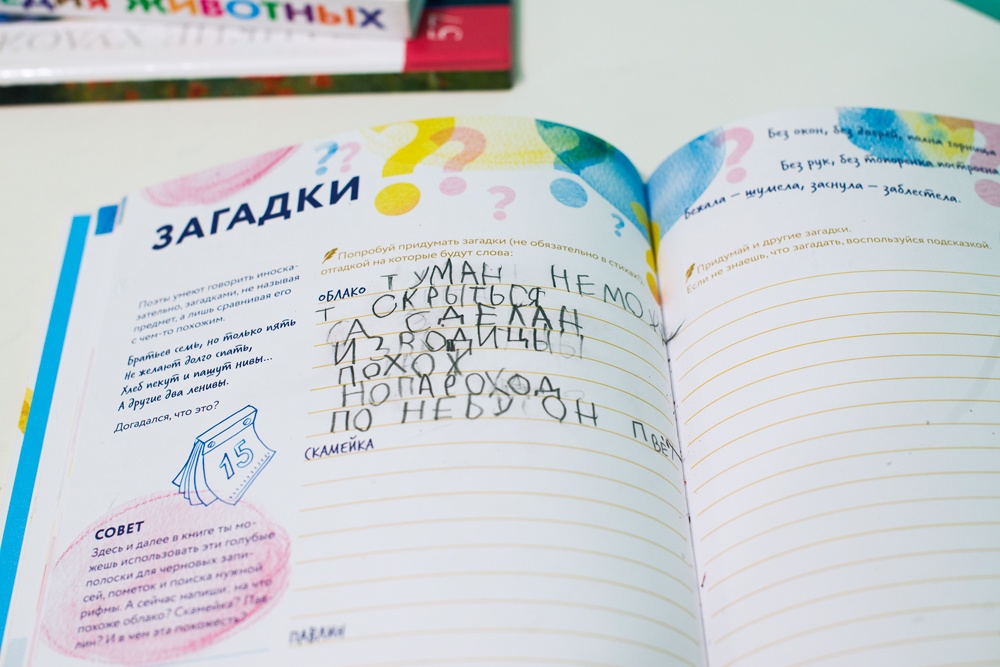 ЖИВОТНЫХ
57
ЗАГАДКИ
Поэты умеют говорить иноска-
зательно, загадками, не называя
предмет, а лишь сравнивая его
с чем-то похожим.
Братьев семь, но только пять
Не желают долго спать,
Хлеб пекут и пашут нивы...
А другие два ленивы.
Догадался, что это?
15
СОВЕТ
Здесь и далее в книге ты мо-
жешь использовать эти голубые
полоски для черновых запи-
сей, пометок и поиска нужной
рифмы. А сейчас напиши: на что
похоже облако? Скамейка? Пав-
лин? И в чем эта похожесть?
Попробуй придумать загадки (не обязательно в стихах),
отгадкой на которые будут слова:
ОБЛАКО
ТУМАН НЕМО
Т СКРЫТЬСЯ
СДЕЛАН
ИЗ ВОДИЦЫ
ПОХОХ
НОПАРОХОД
ПО НЕБУ ОН
СКАМЕЙКА
ПАВЛИН
Без окон, без дверей, полна горница
Без рук, без топоренка построена
Бежала – шумела, заснула – заблестела.
Придумай и другие загадки.
Если не знаешь, что загадать, воспользуйся подсказкой.